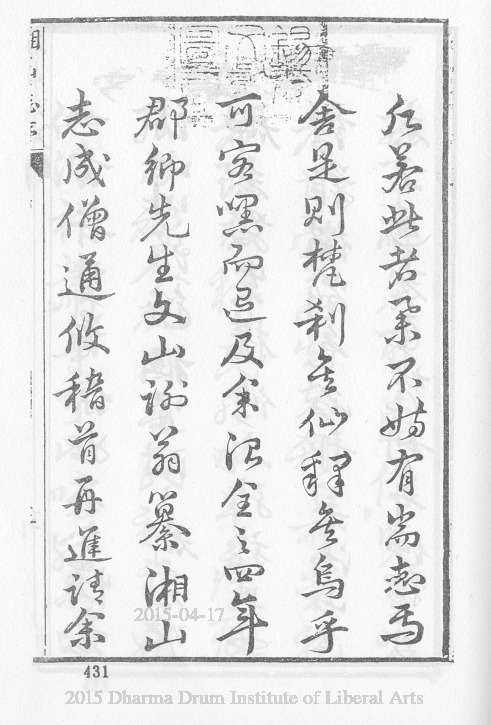 仁若此者果不妨有耑焉
舍是則梵刹無仙釋無烏乎
可容嘿而已及余治全之四年
郡鄉先生文山謝翁纂湘山
志成僧通攸稽首再進請余
2015-04-17
431
2015 Dharma Drum Institute of Liberal Arts